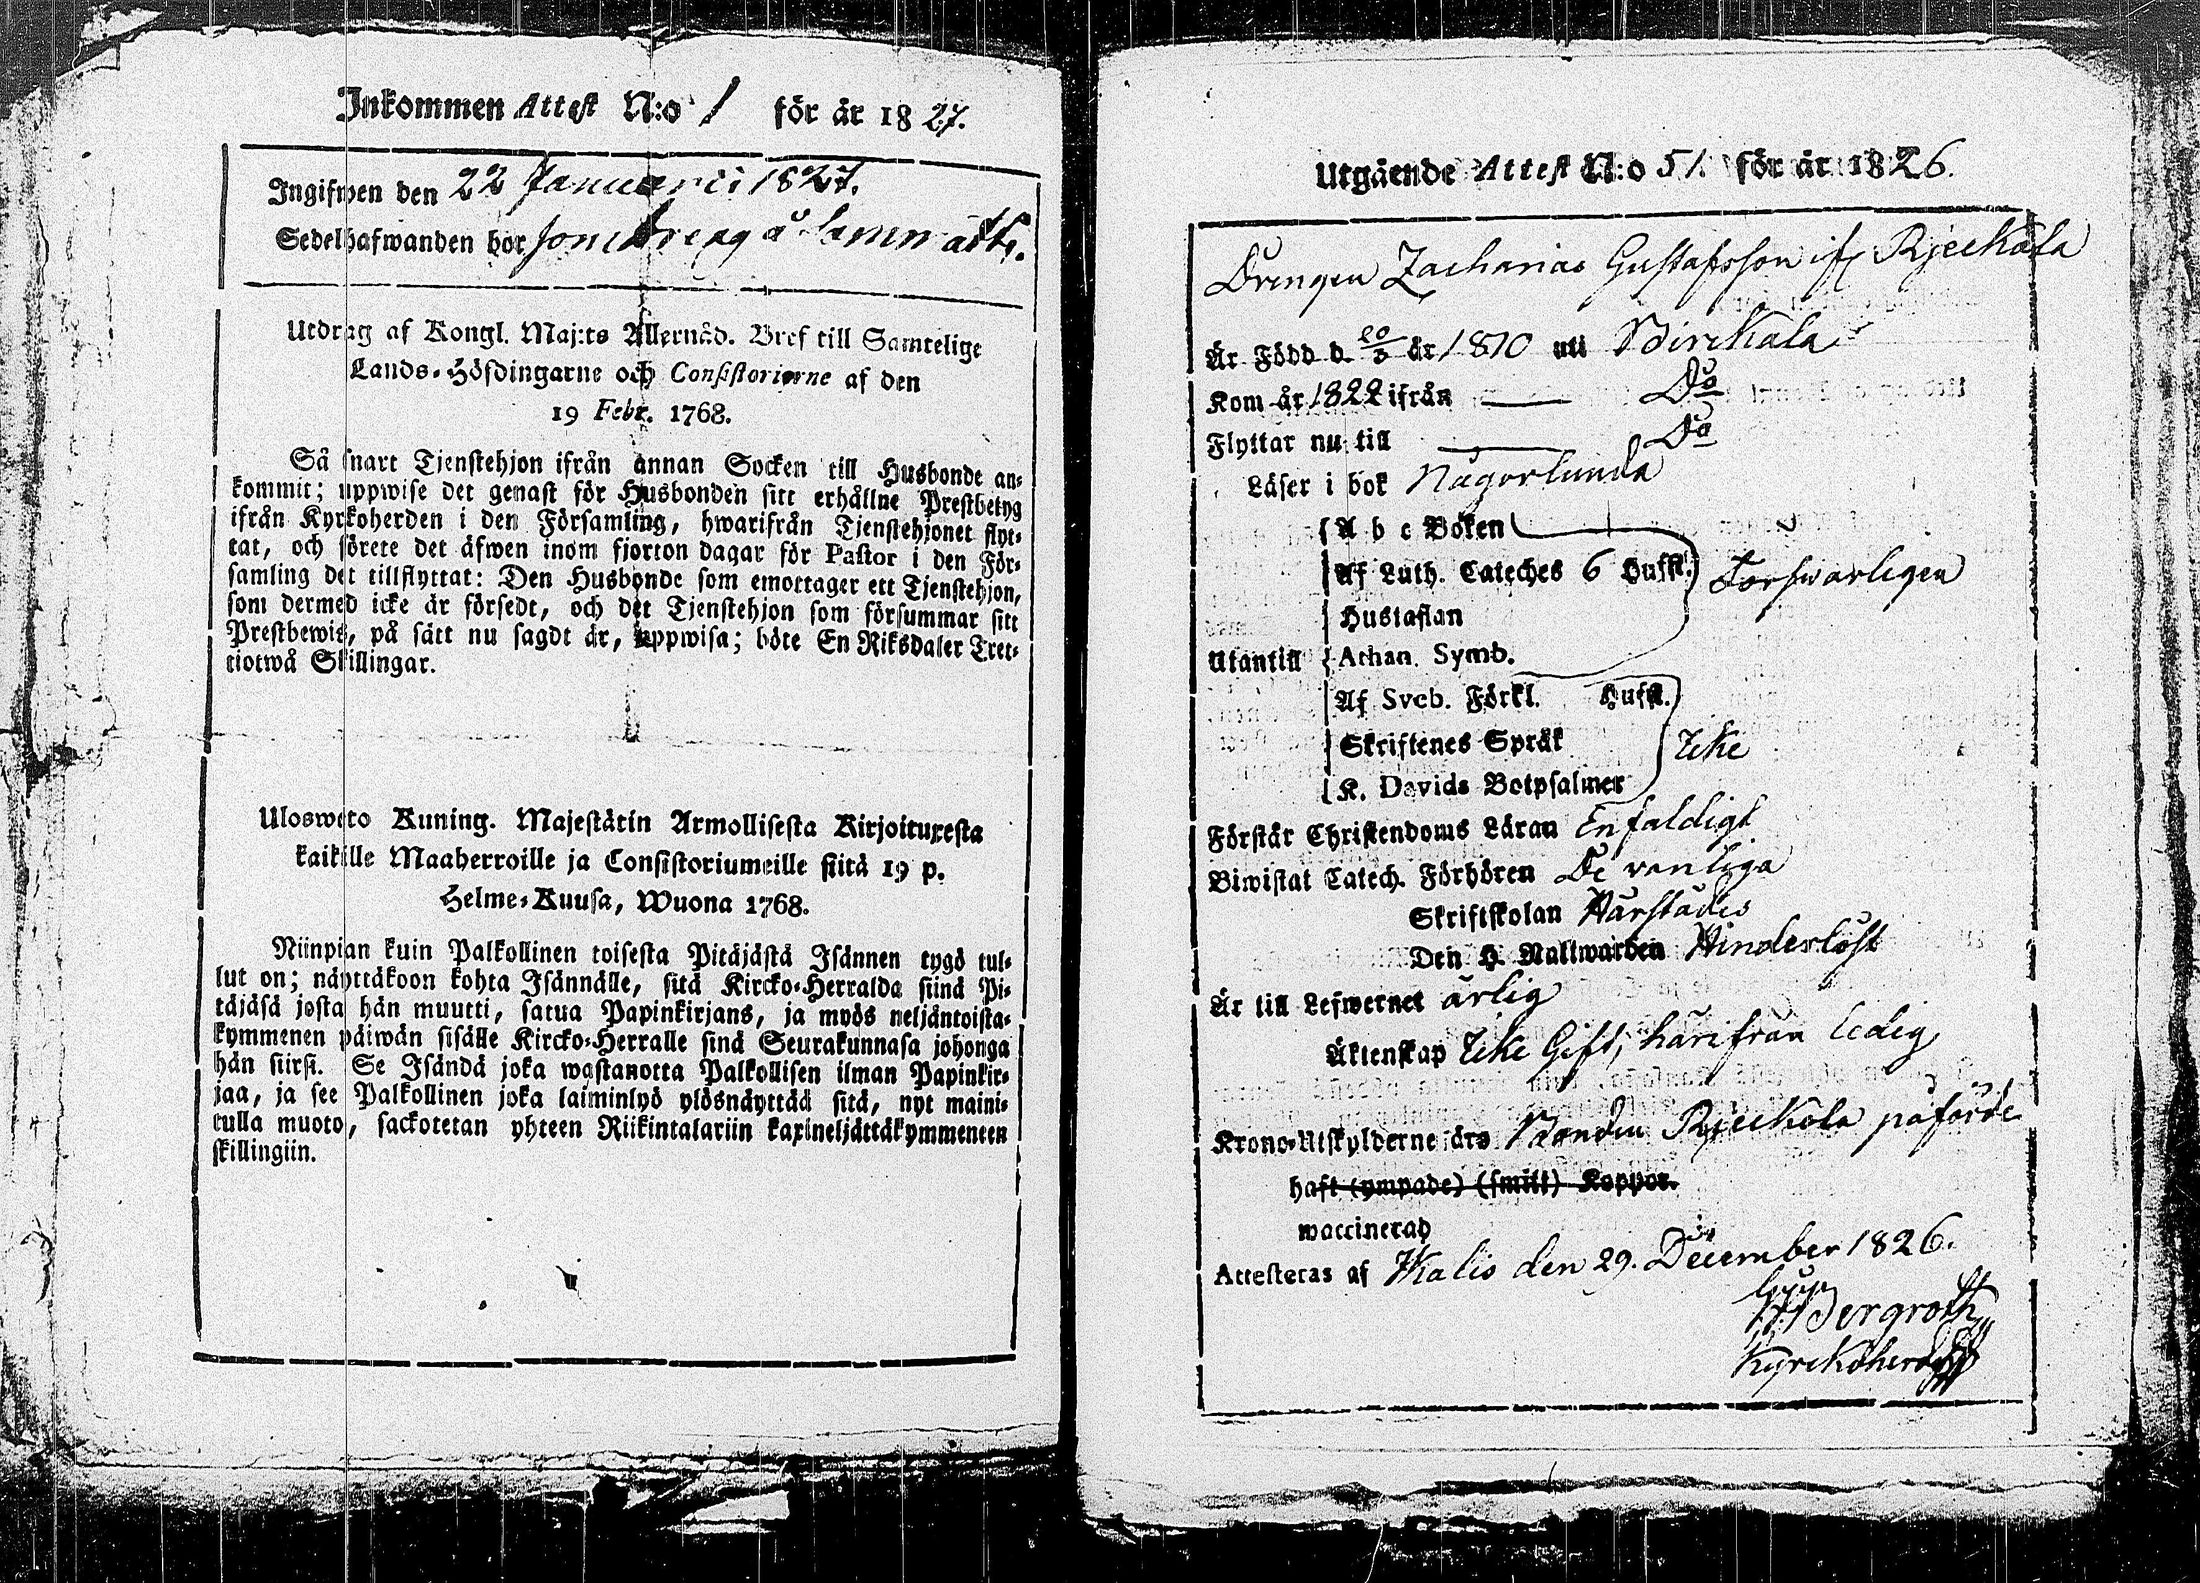 Inkommen Attest N:o 1 för år 1827.
Ingifwen den 22 Januarii 1827.
Sedelhafwanden bor som dreng å
Utdrag af Kongl. Maj:ts Allernåd. Bref till Samtelige
Lands-Höfdingarne och Consistorierne af den
19 Febr. 1768.
Så snart Tjenstehjon ifrån annan Socken till Husbonde an-
kommit; uppwise det genast för Husbonden sitt erhållne Prestbetyg
ifrån Kyrkoherden i den Församling, hwarifrån Tjenstehjonet flyt-
tat, och förete det äfwen inom fjorton dagar för Pastor i den För-
samling det tillflyttat: Den Husbonde som emottager ett Tjenstehjon,
som dermed icke är försedt, och det Tjenstehjon som försummar sitt
Prestbewis, på sätt nu sagdt är, uppwisa; böte En Riksdaler Tret-
tiotwå Skillingar.
Ulosweto Kuning. Majestätin Armollisesta Kirjoituxesta
kaikille Maaherroille ja Consistoriumeille siitä 19 p.
Helme-Kuusa, Wuona 1768.
Niinpian kuin Palkollinen toisesta Pitäjästä Isännen tygö tul-
lut on; näyttäköon kohta Isännälle, sitä Kircko-Herralda siinä Pi-
täjäsä josta hän muutti, saatua Papinkirjans, ja myös neljäntoista-
kymmenen päiwän sisälle Kircko-Herralle sinä Seurakunnasa johonga
hän siirsi. Se Isändä joka wastanotta Palkollisen ilman Papinkir-
jaa, ja see Palkollinen joka laiminlyö ylösnäyttää sitä, nyt maini-
tulla muoto, sackotetan yhteen Riikintalariin kaxineljättäkymmenteen
skillingiin.
Utgående Attest N:o 51. för år 1826.
Drengen Zacharias Gustafsson ifr Rjeekola
Är Född d. 20/3 år 1810 uti Birckala
Kom år 1822 ifrån Do
Flyttar nu till Do
Läser i bok Någorlunda
A b c Boken
Af Luth. Cateches 6 Hufst. Försvarligen
Hustaflan
Utantill Athan. Symb.
Af Sveb. Förkl. Hufst.
Skriftenes Språk Icke
K. Davids Botpsalmer
Förstår Christendoms Läran Enfaldigt
Biwistat Catech. Förhören De vanliga
Skriftskolan Härstädes
Den H. Nattwarden Hinderlöst
Är till Lefwernet ärlig
Äktenskap Icke Gift, härifrån ledig
Krono-Utskylderne äro Bonden Rjeekola påförde
haft (ympade) (smitt) Koppor.
waccinerad
Attesteras af Ikalis den 29. December 1826.
Bergroth
Kyrckoherde